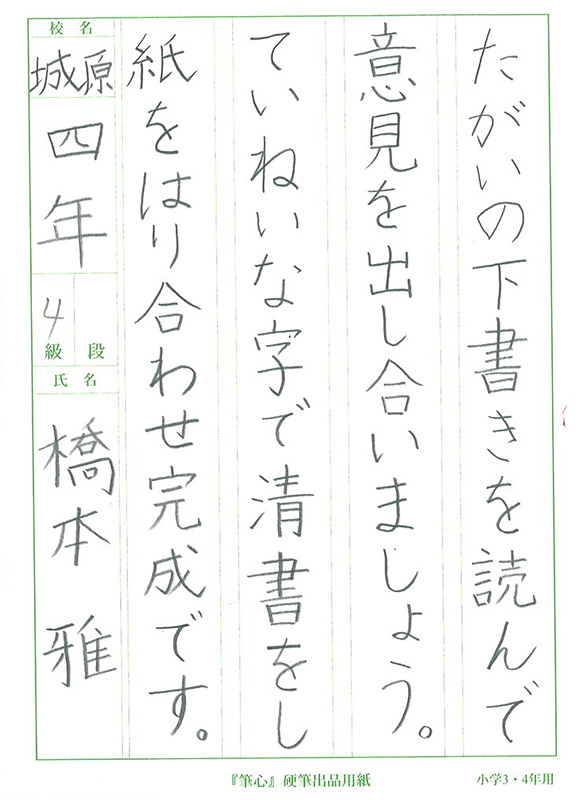 たがいの下書きを読んで
意見を出し合いましょう。
ていねいな字で清書をし
紙をはり合わせ完成です。
校名
城原
四年
4
級 段
氏名
橋本 雅
『筆心』硬筆出品用紙
小学3・4年用